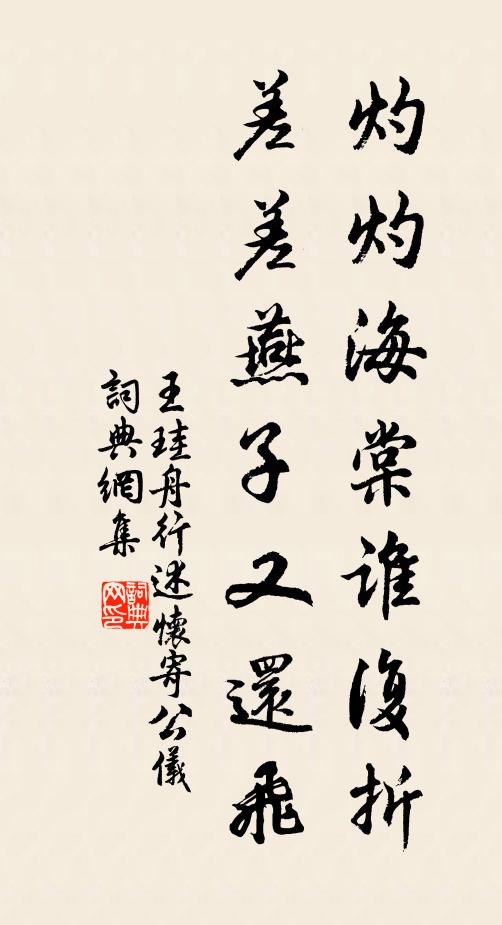 灼灼海棠誰復折
差差燕子又還飛
王珪舟行述懷寄公儀
詞典網集
詞典網印